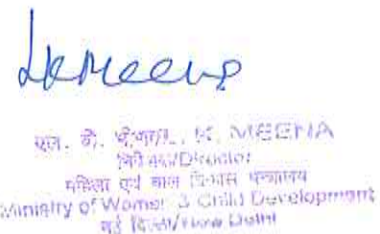 LKMeena
एल. के. मीणा/L. K. MEENA
निदेशक/Director
महिला एवं बाल विकास मन्त्रालय
Ministry of Women & Child Development
नई दिल्ली/New Delhi